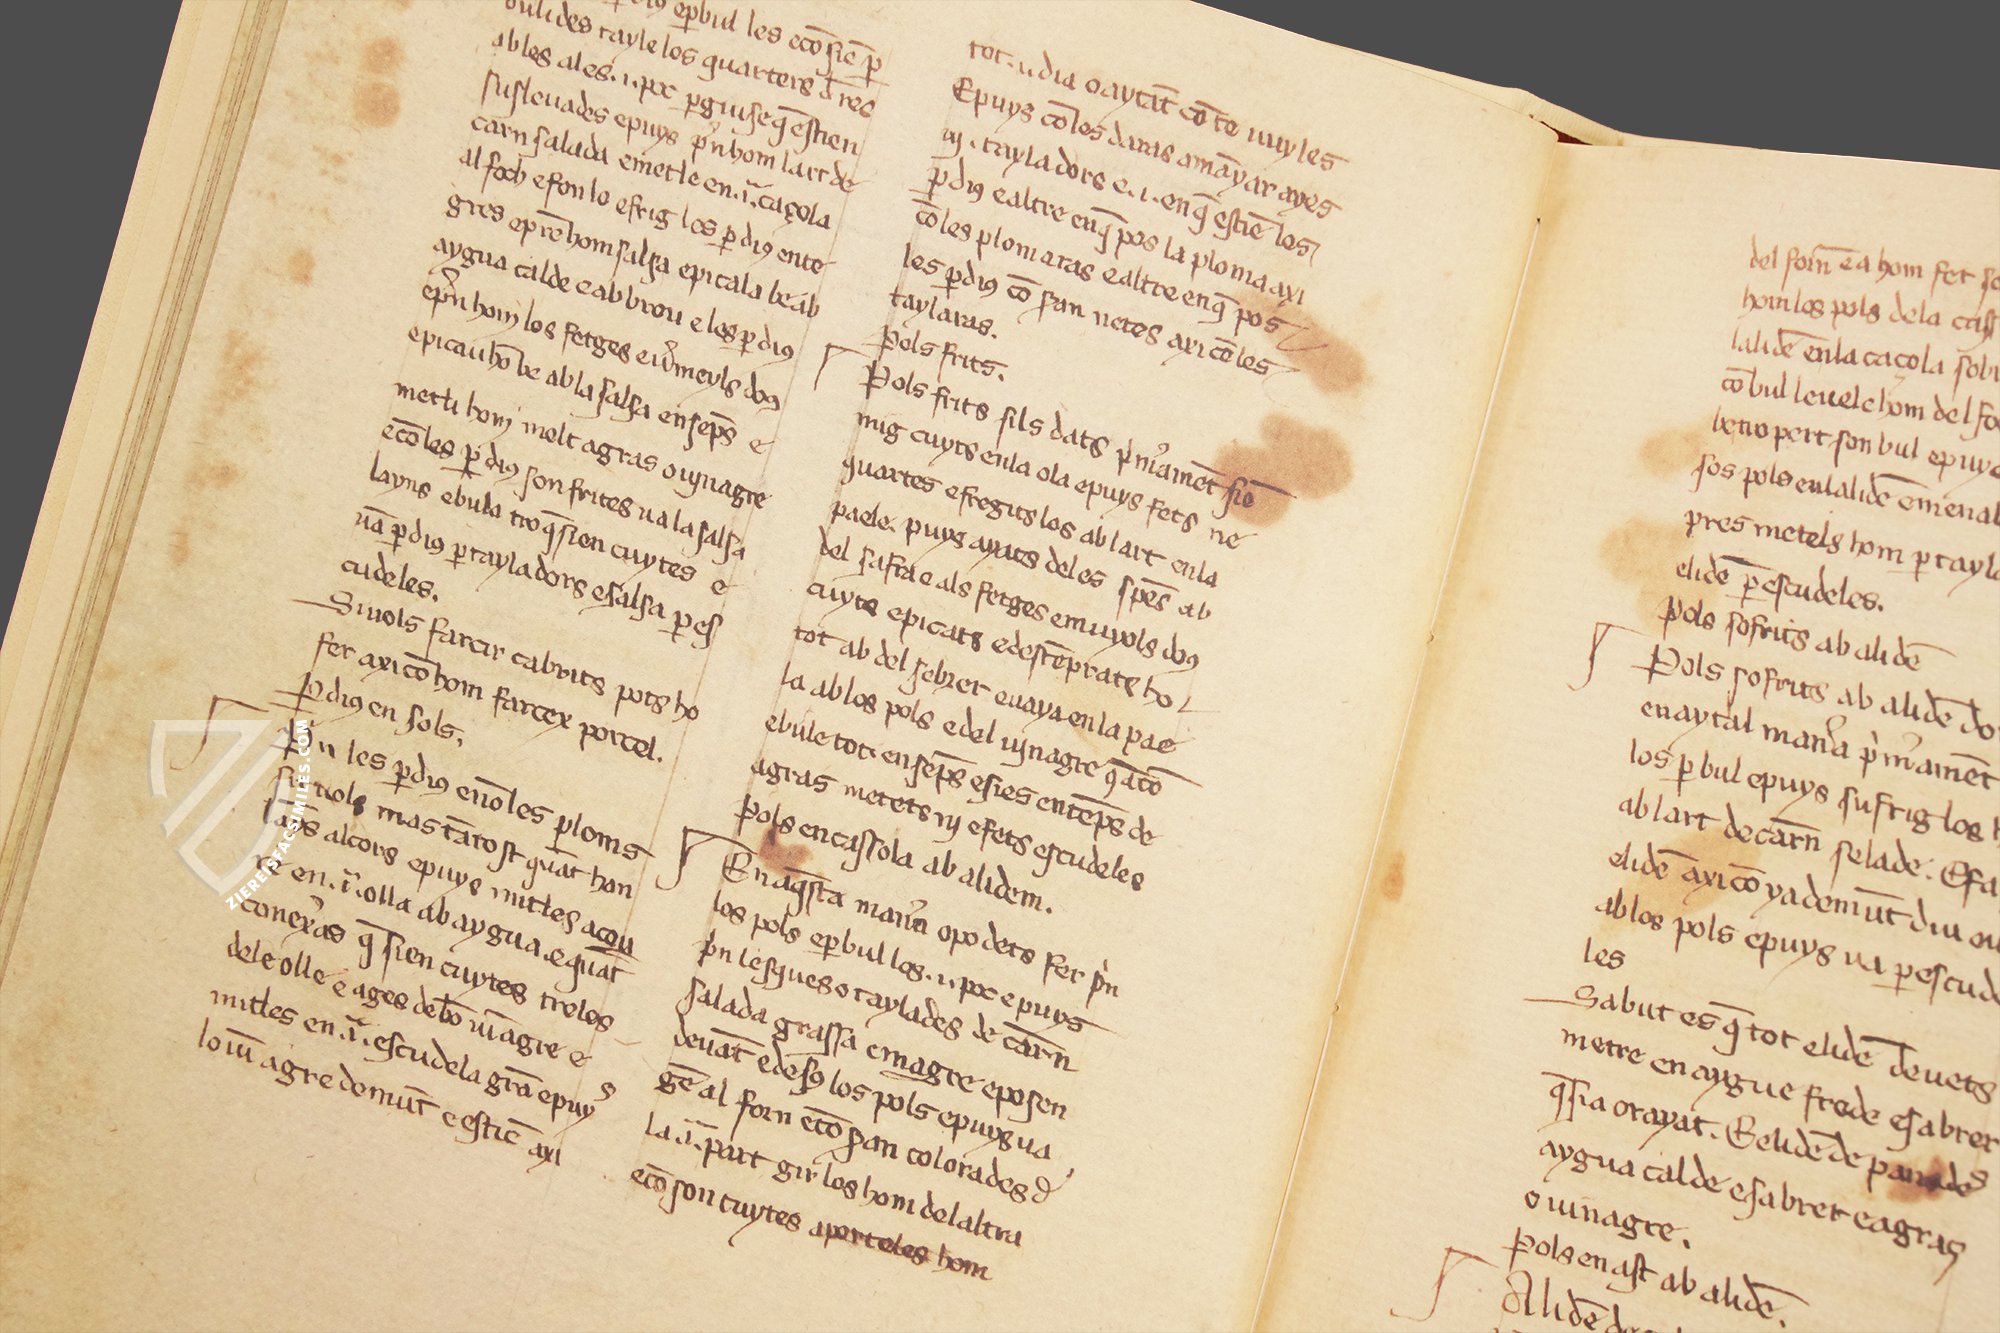 les ecō sie p̄
ouli des tayle los quarters d̄ rec
ables ales .i. poc p guiseq̄ estien
susleuades epuys pn̄ hom lart de
carn salada emetle en .i.ᵃ caçola
al foch efon lo efrig les p dius ente
gres epn̄e hom salsa epicala be ab
aygua calde eab brou e les p dius
epn̄ hom los fetges e uermeyls dous
epicau hō be abla salsa ensēps e
metli hom molt agras o uynagre
ecō les p dius son frites ua la salsa
layns ebula tro q̄ sien cuytes e
uā p dius p tayladors e salsa p es
cudeles.
Siuols farcir cabrits pots ho
fer axi cō hom farcex porcel.
p dius en sols.
Pn̄ les p dius enō les ploms
si nols mas tātost quāt han
layns alcors epuys mitles acou
re en .i.ᵃ olla ab aygua. e quāt
conexras q̄ sien cuytes treles
dele olle e ages de bō uinagre e
mitles en .i.ᵃ escudela grā epuys
lo uī agre demūt e estiē axi
tot .i. dia o aytāt cō te uuyles
Epuys cō les daras amāyar ayes
iij. tayladors e .i. en q̄ estiē les
p dius e altre en q̄ pos la ploma axi
cō les plomaras e altre en q̄ pos
les p dius cō seran netes axi cō les
taylaras.
Pols frits.
Pols frits sils dats p̄meramēt siē
mig cuyts en la ola epuys fets ne
quartes e fregits los ab lart en la
paele. puys ayats deles spēs ab
del safra e als fetges emuyols dous
cuyts epicats edestēprats ho
tot ab del sebrer euaya en la pae
la ab los pols e del uynagre q̄acō
ebule tot ensēps e sies entēps de
agras metets ny e fets escudeles
pols en cassola ab alidem.
En aq̄sta manera opodets fer pn̄
los pols e pbul los .i. poc epuys
pn̄ lesques o taylades de carn
salada grassa e magre e posen
deuāt e desus los pols epuys ua
gē al forn ecō seran colorades d̄
la .i.ᵃ part gir los hom delaltra
ecō son cuytes aperteles hom
del forn e a hom fet
hom los pols dela cass
lalidē en la caçola sobr
cō bul leuele hom del foc
be no pert son bul epuys
sos pols en lalidē emenab
pres metels hom p tayla
elidē p escudeles.
Pols sofrits ab alidē
Pols sofrits ab alidē do
en aytal manera p̄meramēt
los p bul epuys sufrig los h
ab lart de carn selade. Efa
elidē axi cō ya demūt diu
ab los pols epuys ua p escude
les
Sabut es q̄ tot elidē deuets
metre en aygue frede e sabrer
q̄ sia orayat. E elidē de panades
aygua calde e sabrer e agras
o uinagre.
Pols en ast ab alidē.
Alidē
ZIERERSFACSIMILES.COM